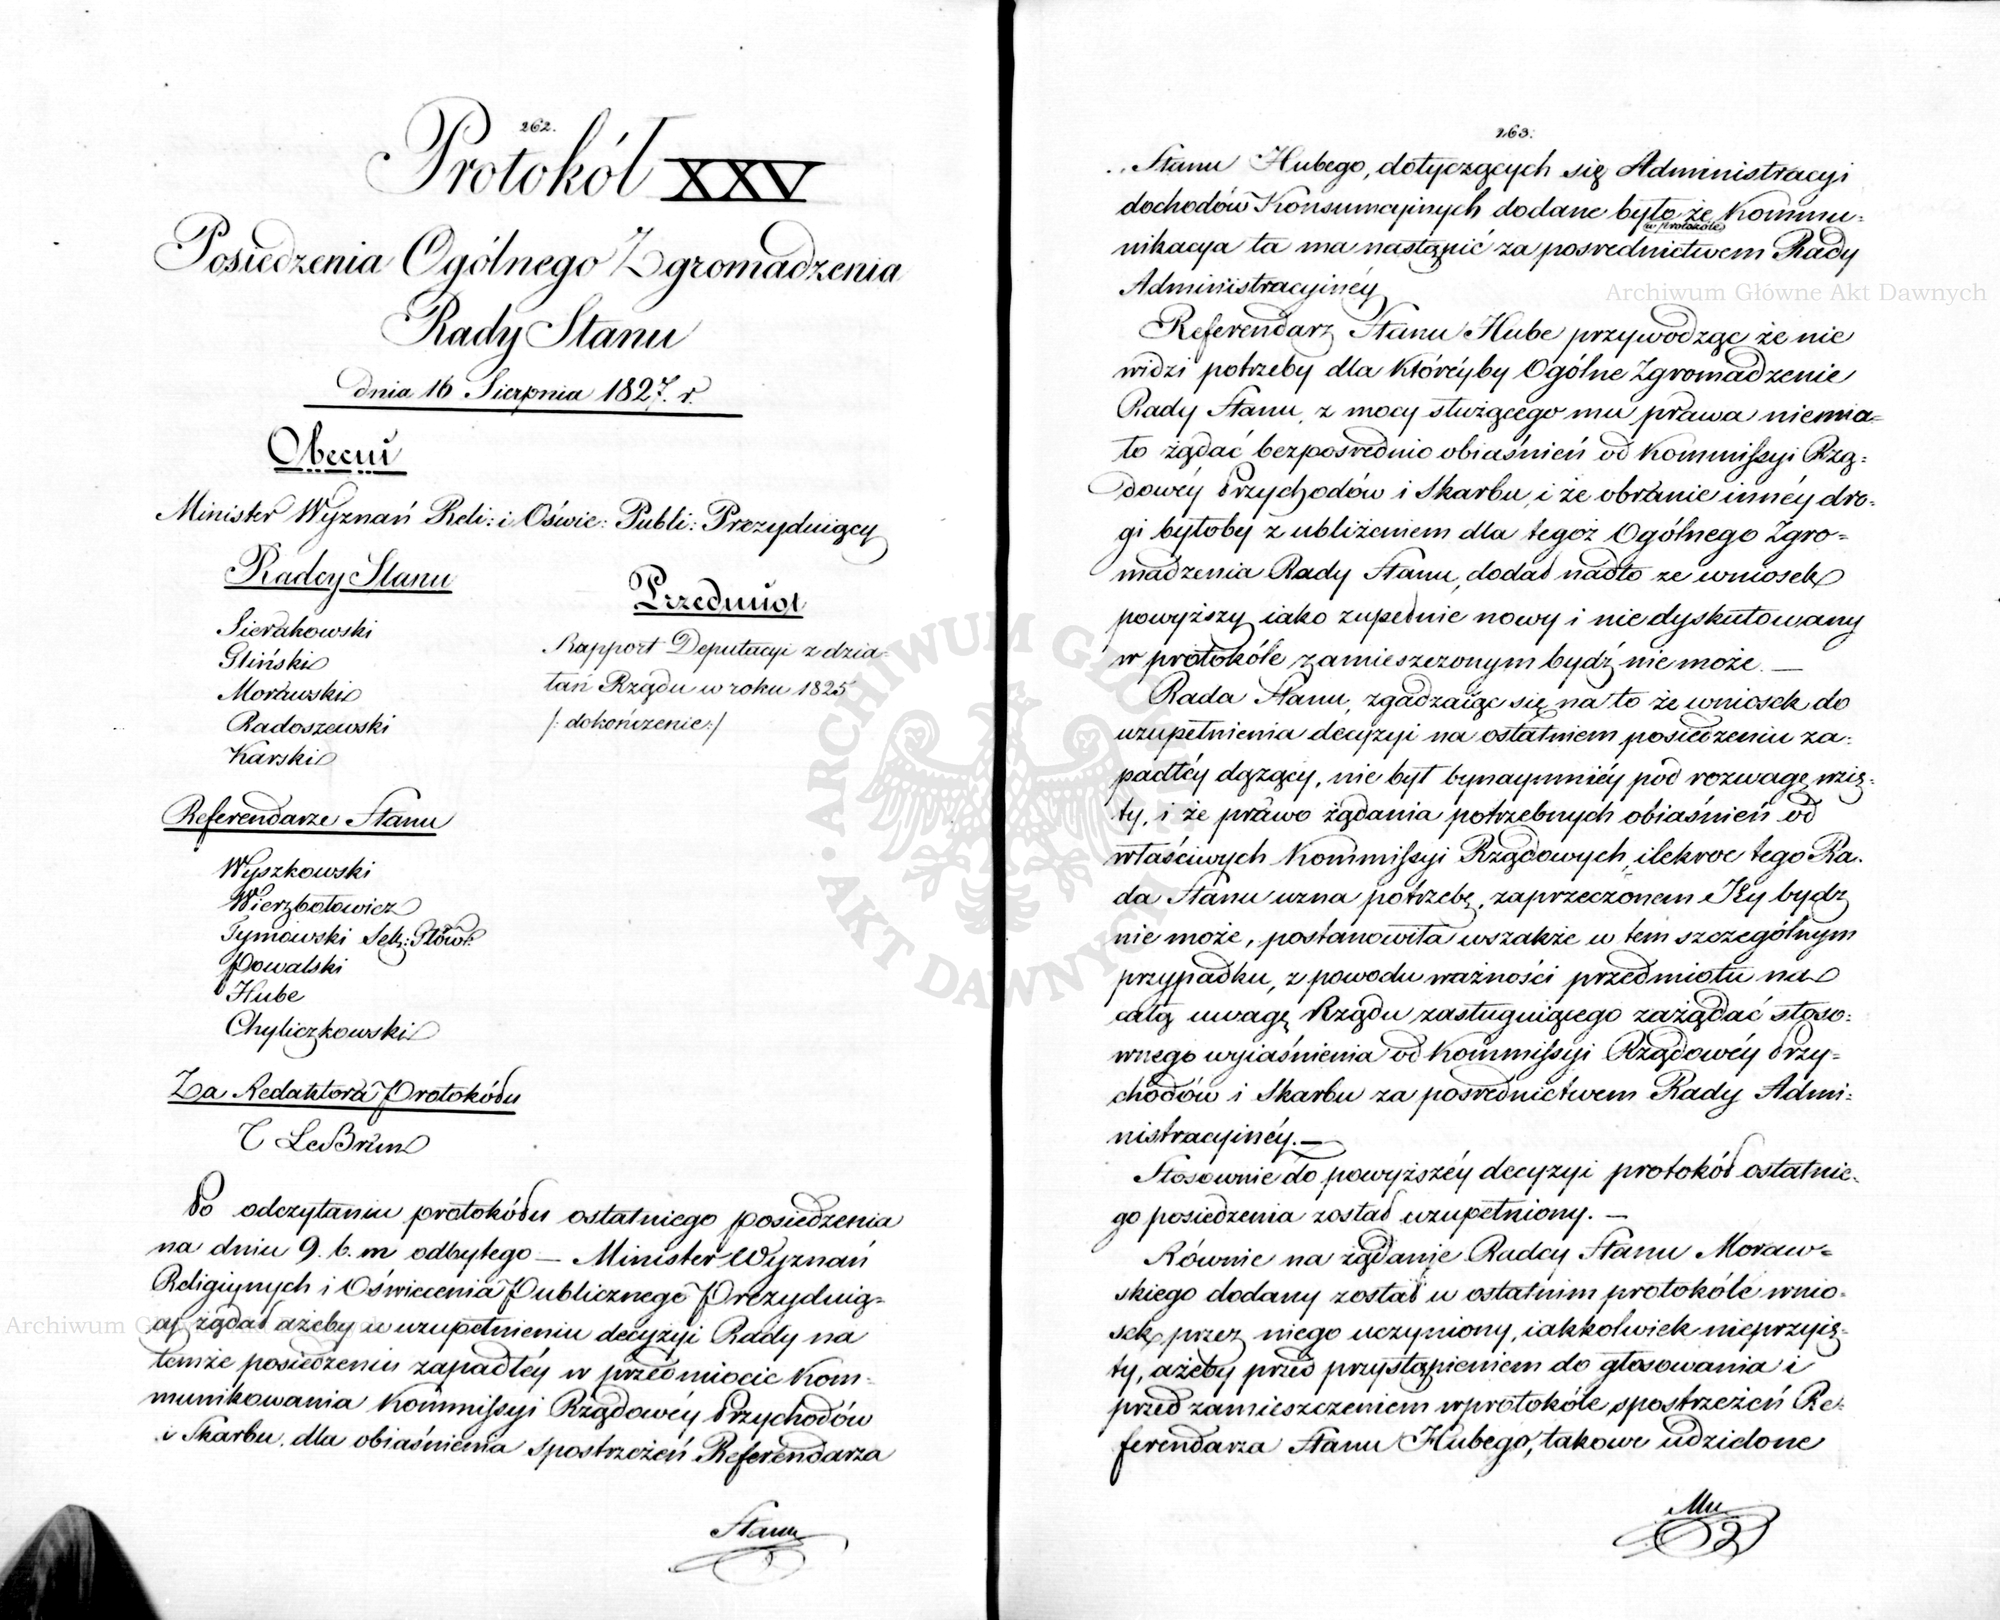 262.
Protokół XXV
Posiedzenia Ogólnego Zgromadzenia
Rady Stanu
dnia 16 Sierpnia 1827. r.
Obecni
Minister Wyznań Reli: i Oświe: Publi: Prezyduiący
Radcy Stanu
Sierakowski
Gliński
Morawski
Radoszewski
Karski
Przedmiot
Rapport Deputacyi z dzia-
łań Rządu w roku 1825
/: dokończenie:/
Referendarze Stanu
Wyszkowski
Wierzbołowicz
Tymowski Sek: Główt:
Powalski
Hube
Chyliczkowski
Za Redaktora Protokółu
T LeBrun
Po odczytaniu protokółu ostatniego posiedzenia
na dniu 9. b. m odbytego — Minister Wyznań
Religiynych i Oświecenia Publicznego Prezyduią-
cy żądał ażeby w uzupełnieniu decyzyi Rady na
temże posiedzeniu zapadłéy w przedmiocie Kom-
munikowania Kommissyi Rządowéy Przychodów
i Skarbu, dla obiaśnienia spostrzeżeń Referendarza
Stanu
263.
Stanu Hubego, dotyczących się Administracyi
dochodów Konsumcyinych dodane było że Kommu-
w protokóle
nikacya ta ma nastąpić za posrednictwem Rady
Administracyinéy
Referendarz Stanu Hube przywodząc że nie
widzi potrzeby dla któréyby Ogólne Zgromadzenie
Rady Stanu, z mocy służącego mu prawa niemia-
ło żądać bezposrednio obiaśnień od Kommissyi Rzą-
dowéy Przychodów i Skarbu, i że obranie innéy dro-
gi byłoby z ubliżeniem dla tegoż Ogólnego Zgro-
madzenia Rady Stanu, dodał nadto ze wniosek
powyższy iako zupełnie nowy i nie dyskutowany
w protokóle zamieszczonym bydź nie może. —
Rada Stanu, zgadzaiąc się na to że wniosek do
uzupełnienia decyzyi na ostatniem posiedzeniu za-
padłéy dążący, nie był bynaymniéy pod rozwagę wzię-
ty, i że prawo żądania potrzebnych obiaśnień od
właściwych Kommissyi Rządowych, ilekroc tego Ra-
da Stanu uzna potrzebę, zaprzeczonem Jéy bydz
nie może, postanowiła wszakże w tem szczególnym
przypadku, z powodu ważności przedmiotu na
całą uwagę Rządu zasługuiącego zażądać stoso-
wnego wyiaśnienia od Kommissyi Rządowéy Przy-
chodów i Skarbu za posrednictwem Rady Admi-
nistracyinéy. —
Stosownie do powyższéy decyzyi protokół ostatnie-
go posiedzenia został uzupełniony. —
Równie na żądanie Radcy Stanu Moraw-
skiego dodany został w ostatnim protokóle wnio-
sek przez niego uczyniony, iakkolwiek nieprzyię-
ty, ażeby przed przystąpieniem do głosowania i
przed zamieszczeniem w protokóle spostrzeżeń Re-
ferendarza Stanu Hubego, takowe udzielone
Mu
Archiwum Główne Akt Dawnych
ARCHIWUM GŁÓWNE AKT DAWNYCH